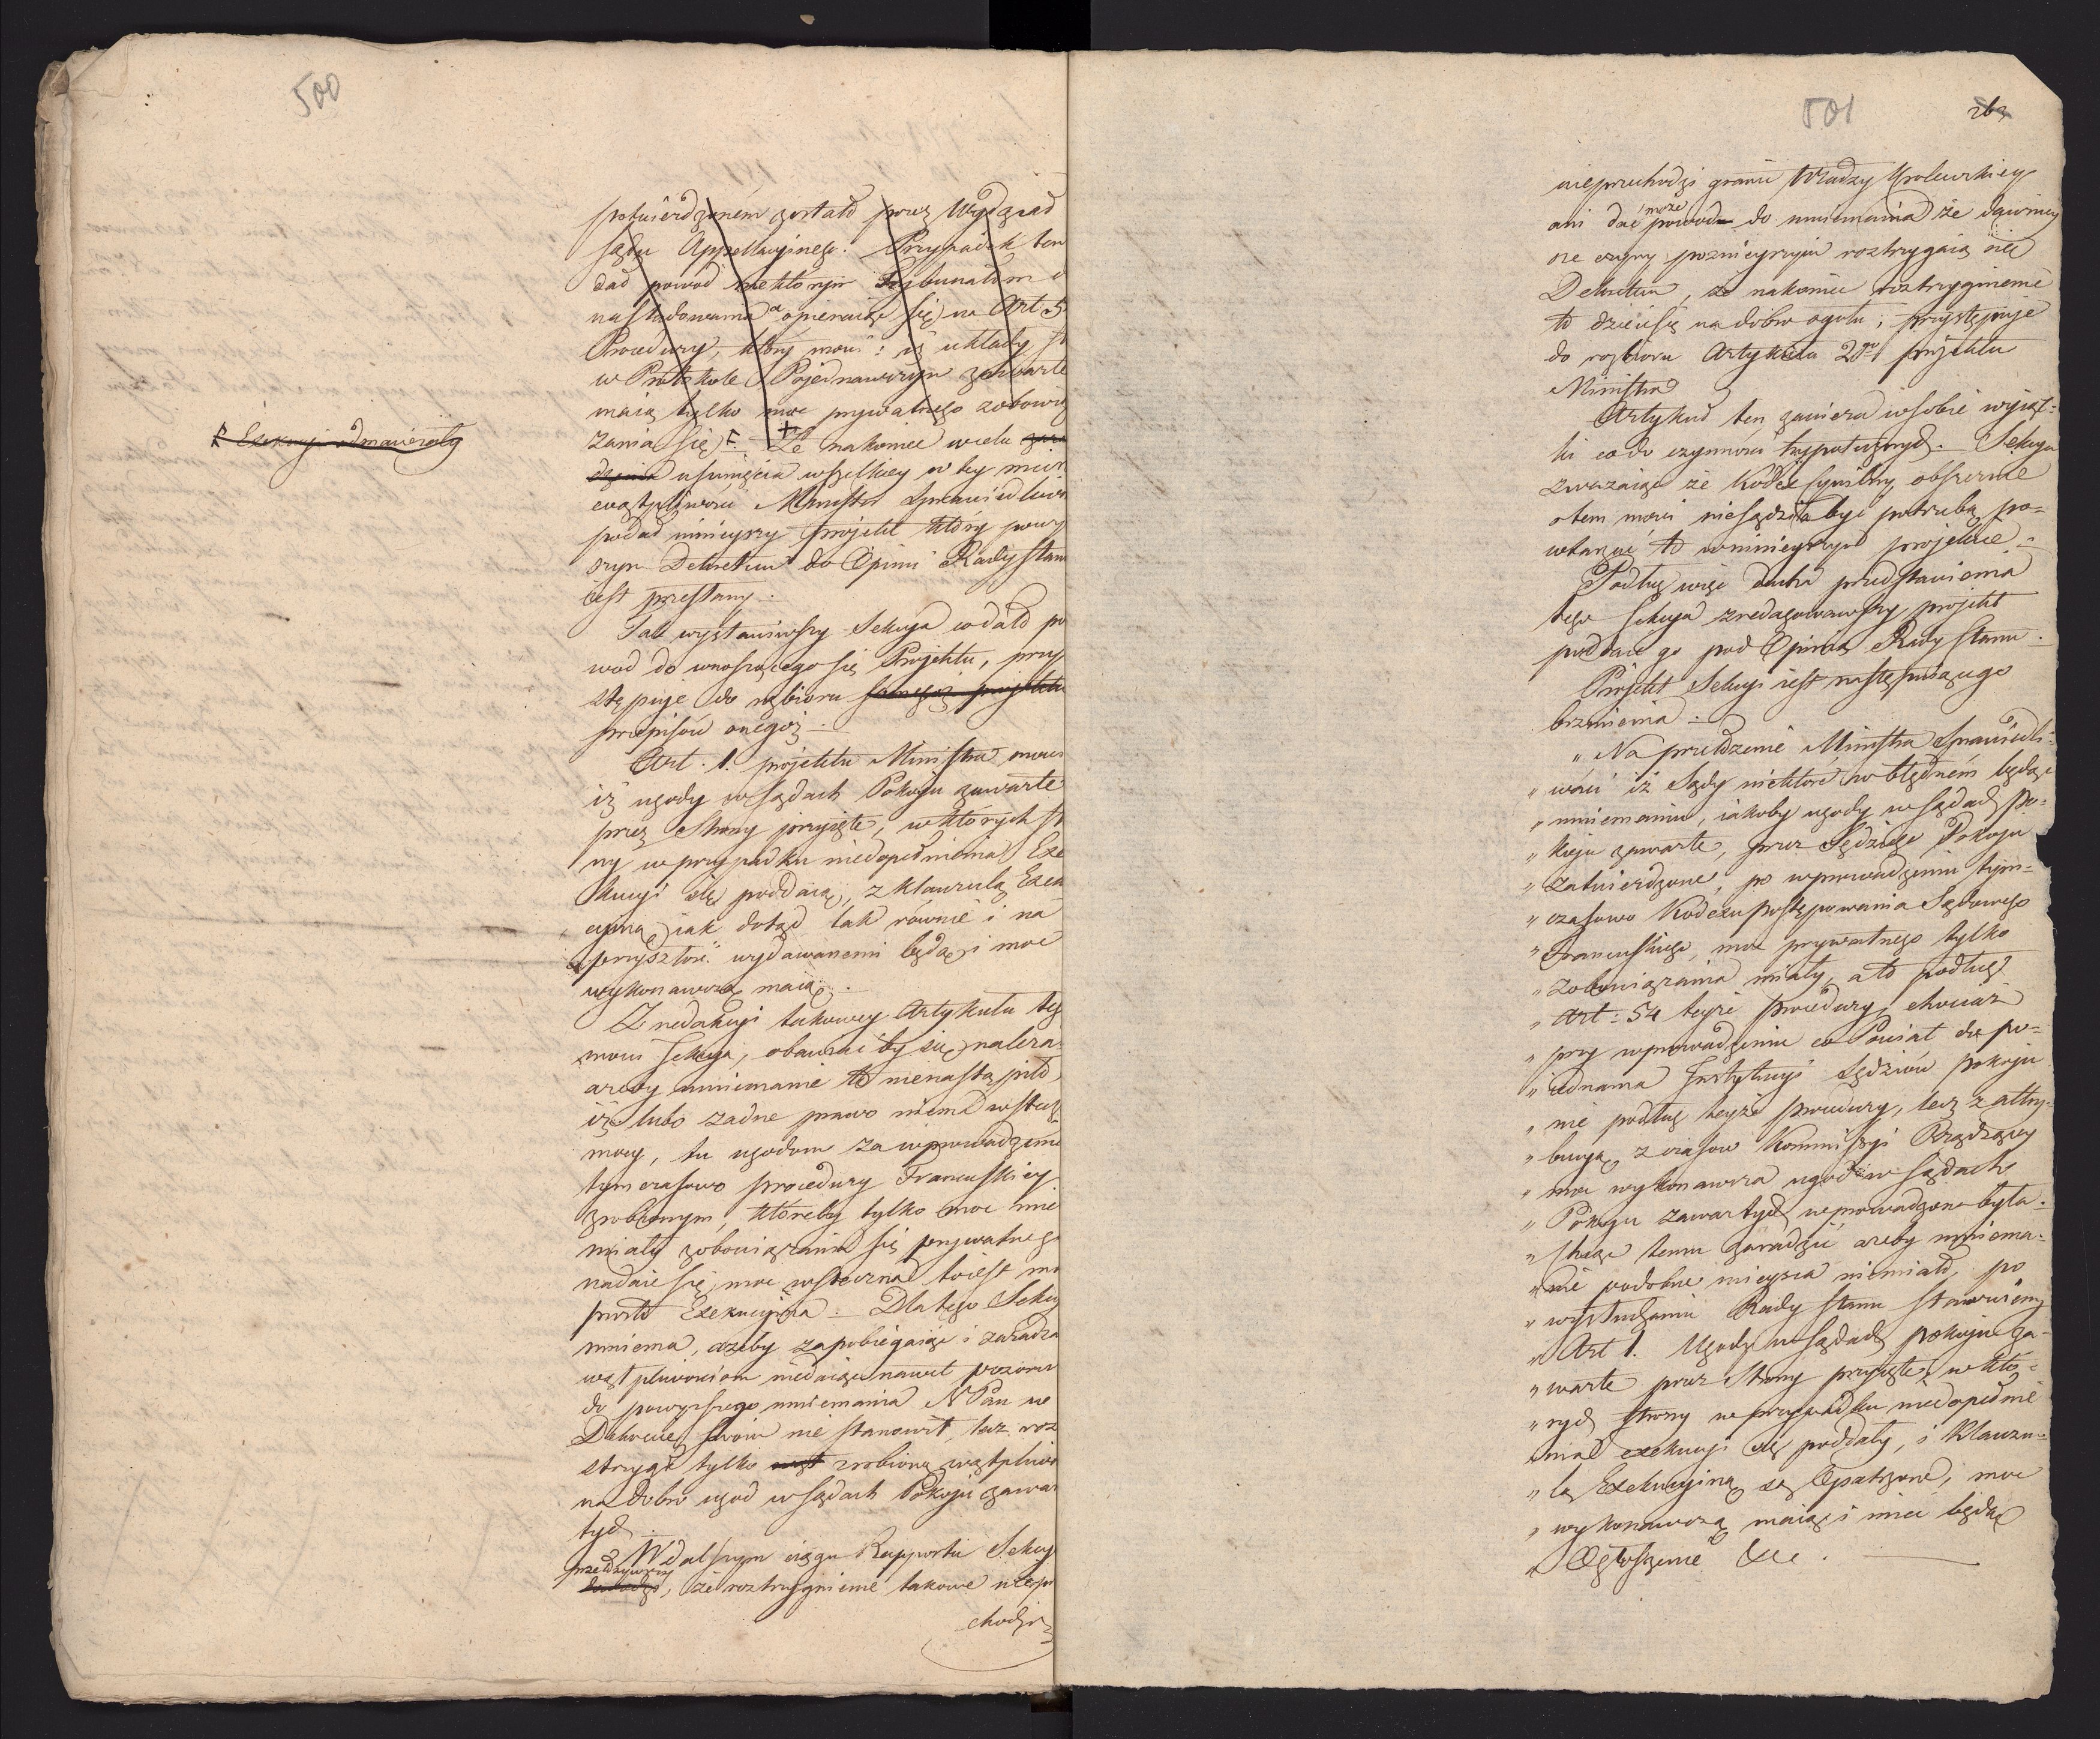 500
potwierdzoném został przez Wydział
Sądu Appellacyinego. Przypadek ten
dał powod niektórym Trybunałom d
naśladowania opieraiąc się na Art 5
Procedury, który mowi: iż układy
w Protokole Pojednawczym zawarte
maią tylko moc prywatnego zobowią
zania się. Że nakoniec w celu
usunięcia wszelkiey w tey mier
wątpliwości Minister Sprawiedliwo
podał ninieyszy projekt który powyż
szym Dekretem do Opinii Rady Stanu
iest przesłany.
R Exekucyi odmawiały
Tak wystawiwszy Sekcya co dało po
wod do wnoszącego się Projektu, przy
stępuje do rozbioru samegoż projektu
przepisów onegoż.
Art. 1. projektu Ministra mowi
iż ugody w Sądach Pokoju zawarte
przez Strony przyięte, w których st
ny w przypadku niedopełnienia Exe
kucyi się poddaią, z klauzulą Exeku
cyiną jak dotąd tak równie i na
przyszłość wydawanemi będą i moc
wykonawczą maią.
Z redakcyi takowey Artykułu teg
mowi Sekcya, obawiać by się należa
ażeby mniemanie to nienastąpiło,
iż lubo żadne prawo niema wstecz
mocy, tu ugodom za wprowadzenie
tymczasowo procedury Francuskiey
zrobionym, któreby tylko moc mie
miały zobowiązania się prywatnego
nadaie się moc wsteczna to iest mo
prosto Exekucyina. Dlatego Sekcy
mniema, ażeby zapobiegaiąc i zaradza
wątpliwościom niedaiąc nawet pozoru
do powyższego mniemania N Pan w
Dekrecie swoim nie stanowił, lecz roz
strzygł tylko wąt zrobioną wątpliwo
na dobro ugod w Sądach Pokoju zawar
tych.
W dalszym ciągu Rapportu Sekcy
przełożywszy
dowodzi, że roztrzygnienie takowe nieprze
chodzi
501
263
nieprzechodzi granic Władzy Krolewskiey
może
ani dać powodu do mniemania że dawniey
sze czyny poznieyszym roztrzygaią się
Dekretem, że nakoniec roztrzygnienie
to dzieie się na dobro ogołu; przystępuje
do rozbioru Artykułu 2go projektu
Ministra
Artykuł ten zawiera w sobie wyiąt-
ki co do czynności hypotecznych. Sekcya
zważaiąc że Kodex Cywilny obszernie
o tem mowi nie sądziła być potrzebą po-
wtarzać to w ninieyszym projekcie.
Podług więc ducha przedstawienia
tego Sekcya zredagowawszy projekt
poddaie go pod Opinią Rady Stanu.
Projekt Sekcyi iest następuiącego
brzmienia:
„ Na przełożenie Ministra Sprawiedli-
„ wości iż Sądy niektóre w błędném będąc
„ mniemaniu, iakoby ugody w Sądach Po-
„ koju zawarte, przez Sędziego Pokoju
„ zatwierdzone, po wprowadzeniu tym-
„ czasowo Kodexu Postępowania Sądowego
„ Francuskiego, moc prywatnego tylko
„ zobowiązania miały, a to podług
„ Art: 54 teyże procedury, chociaż
„ przy wprowadzeniu co Powiat do po-
„ iednania Instytucyi Sędziów pokoju
„ nie podług teyże procedury, lecz z attry-
„ bucyą z czasow Kommissyi Rządzącey
„ moc wykonawcza ugodów w Sądach
„ Pokoju zawartych wprowadzona była.
„ Chcąc temu zaradzić ażeby mniema-
„ nie podobne mieysca niemiało, po
„ wysłuchaniu Rady Stanu Stanowiemy
„ Art 1. Ugody w Sądach pokoju za-
„ warte przez Strony przyięte, w któ-
„ rych Strony w przypadku niedopełnie
nia exekucyi się poddały, i Klauzu-
„ lą Exekucyiną są Opatrzone, moc
„ wykonawczą maią i mieć będą
„ Ogłoszenie &c.